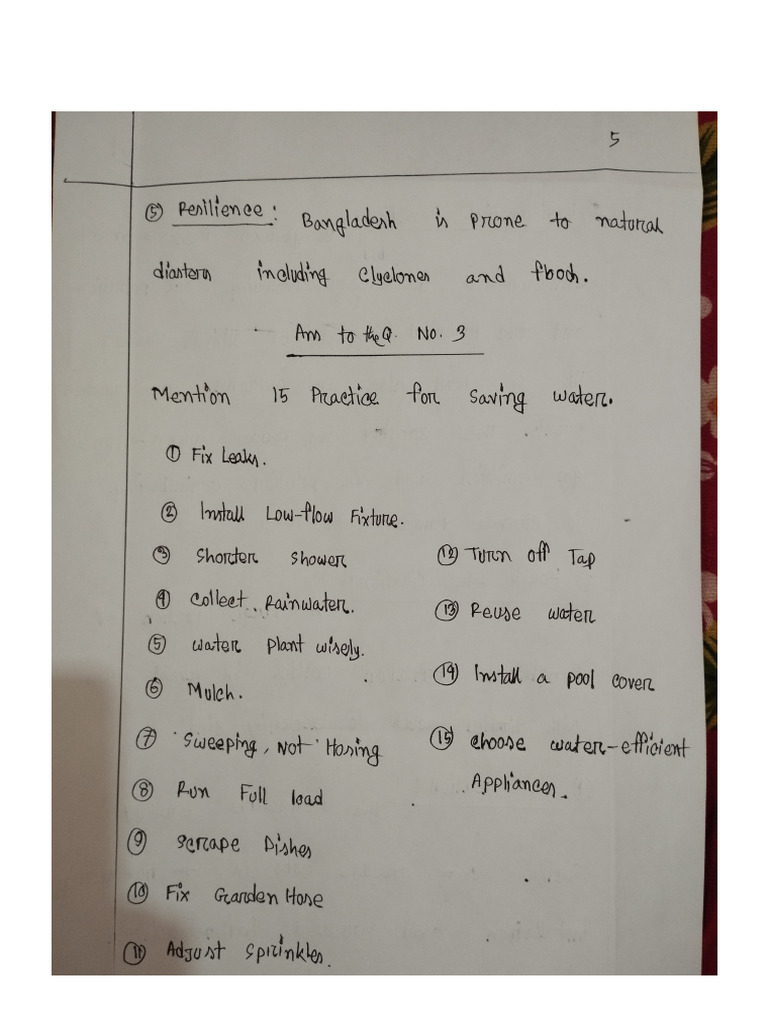 5
⑤ Resilience: Bangladesh is prone to natural
diasters including Clyclones and floods.
Ans to the Q. No. 3
Mention 15 Practice for saving water.
① Fix Leaks.
② Install Low-flow Fixture.
③ Shorter shower
④ Collect Rainwater.
⑤ Water plant wisely.
⑥ Mulch.
⑦ Sweeping, Not Hosing
⑧ Run Full load
⑨ Scrape Dishes
⑩ Fix Garden Hose
⑪ Adjust Sprinkles.
⑫ Turn off Tap
⑬ Reuse water
⑭ Install a pool cover
⑮ Choose water-efficient
Appliances.